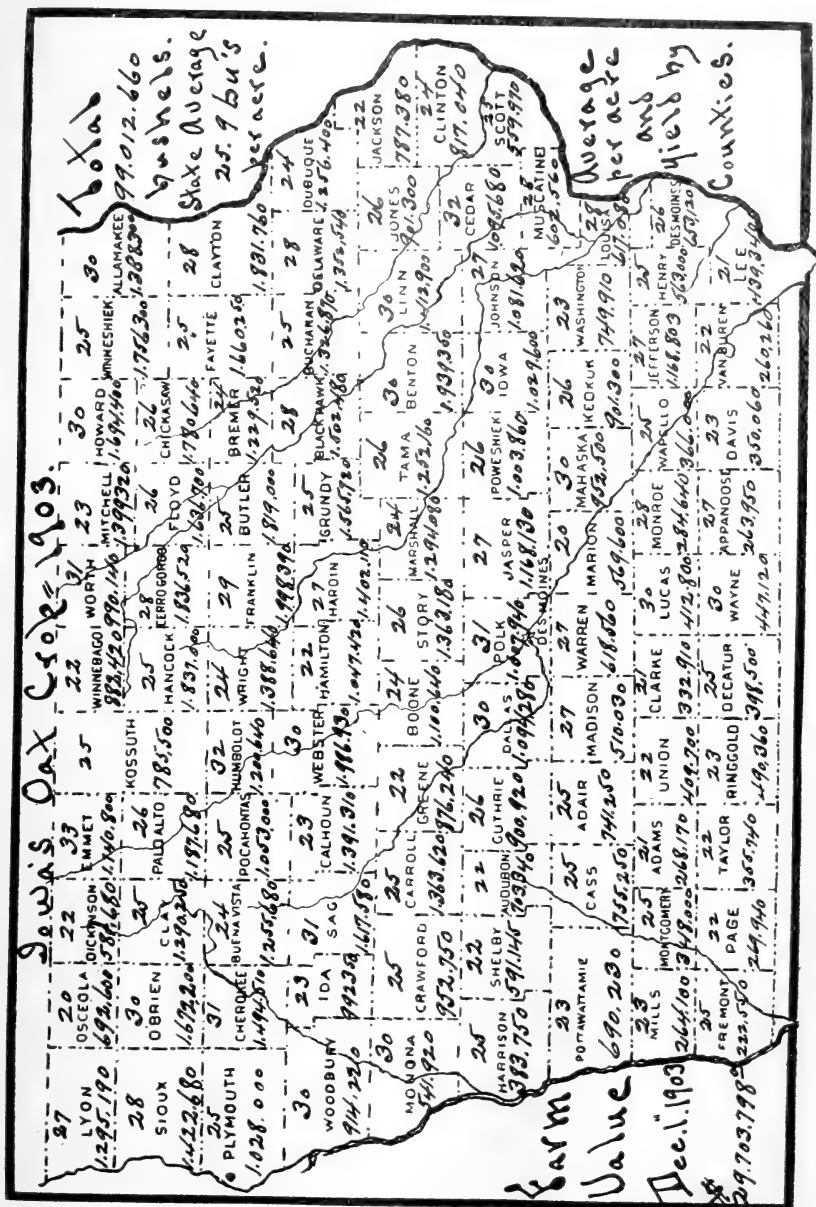 Iowa's Oat Crop - 1903.
Total
99.012.660
bushels.
State Average
25.9 bu's
per acre.
27
LYON
1.295.190
20
OSCEOLA
692.600
22
DICKINSON
33
EMMET
1.140.800
25
KOSSUTH
785.500
22
WINNEBAGO
882.420
31
WORTH
990.140
23
MITCHELL
1.399.320
30
HOWARD
1.694.400
25
WINNESHIEK
1.756.300
30
ALLAMAKEE
28
SIOUX
1.422.680
30
O'BRIEN
1.672.200
25
CLAY
1.290.250
26
PALO ALTO
1.187.680
25
HANCOCK
1.837.000
28
CERRO GORDO
1.836.520
26
FLOYD
1.636.700
26
CHICKASAW
1.780.640
25
FAYETTE
1.660.250
28
CLAYTON
1.831.760
25
PLYMOUTH
1.028.000
31
CHEROKEE
24
BUENA VISTA
1.255.680
25
POCAHONTAS
1.053.000
32
HUMBOLDT
1.204.640
24
WRIGHT
1.388.640
29
FRANKLIN
1.998.390
25
BUTLER
1.819.000
24
BREMER
1.229.520
30
WOODBURY
914.220
23
IDA
31
SAC
1.617.580
23
CALHOUN
1.391.310
30
WEBSTER
1.986.930
22
HAMILTON
1.047.420
27
HARDIN
1.402.110
25
GRUNDY
28
BLACKHAWK
1.502.480
25
BUCHANAN
28
DELAWARE
1.352.540
24
DUBUQUE
1.256.400
30
MONONA
541.920
25
CRAWFORD
952.750
25
CARROLL
1.363.620
22
GREENE
976.240
24
BOONE
1.100.640
26
STORY
1.363.180
24
MARSHALL
1.294.080
26
TAMA
1.252.160
30
BENTON
1.939.300
30
LINN
1.412.900
26
JONES
901.300
22
JACKSON
787.380
24
CLINTON
817.040
25
HARRISON
383.750
22
SHELBY
22
AUDUBON
26
GUTHRIE
900.920
30
DALLAS
1.094.280
31
POLK
DES MOINES
27
JASPER
1.168.130
26
POWESHIEK
1.003.860
30
IOWA
1.029.600
27
JOHNSON
1.081.620
32
CEDAR
25
SCOTT
559.970
MUSCATINE
602.560
23
POTTAWATTAMIE
690.230
25
CASS
755.250
25
ADAIR
741.250
27
MADISON
510.030
27
WARREN
20
MARION
569.600
30
MAHASKA
952.500
26
KEOKUK
901.300
23
WASHINGTON
749.910
28
LOUISA
23
MILLS
264.100
25
MONTGOMERY
348.000
ADAMS
268.170
22
UNION
409.700
CLARKE
332.910
30
LUCAS
412.800
28
MONROE
284.640
25
WAPELLO
27
JEFFERSON
25
HENRY
563.000
26
DES MOINES
25
FREMONT
22
PAGE
22
TAYLOR
355.740
23
RINGGOLD
490.360
25
DECATUR
398.500
30
WAYNE
447.120
27
APPANOOSE
263.950
23
DAVIS
350.060
22
VAN BUREN
260.260
21
LEE
Farm
Value
Dec. 1. 1903
$29.703.798
Average
per acre
and
yield by
Counties.